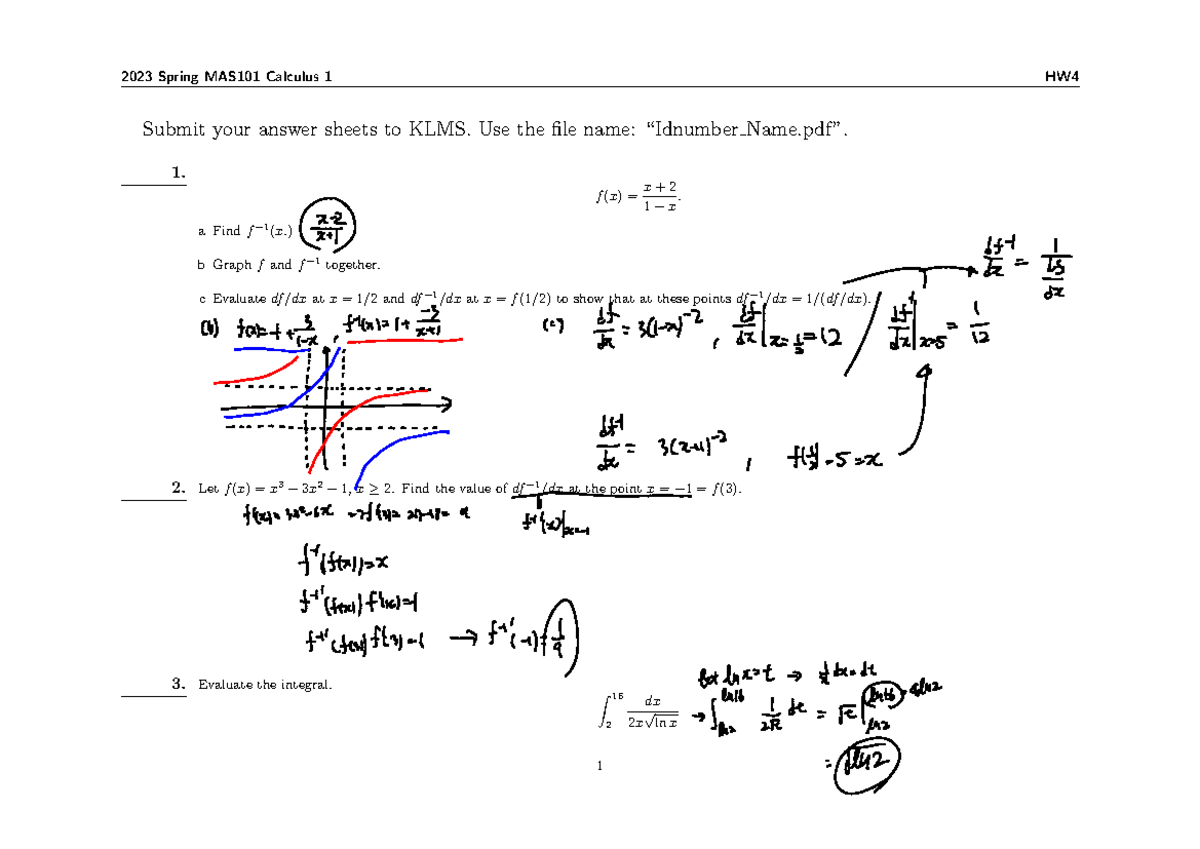 2023 Spring MAS101 Calculus 1 HW4
Submit your answer sheets to KLMS. Use the file name: “Idnumber_Name.pdf”.
1.
f(x) = (x + 2)/(1 − x).
a Find f⁻¹(x.) (x-2)/(x+1)
b Graph f and f⁻¹ together.
df⁻¹/dx = 1/(df/dx)
c Evaluate df/dx at x = 1/2 and df⁻¹/dx at x = f(1/2) to show that at these points df⁻¹/dx = 1/(df/dx).
(b) f(x)=-1+3/(1-x) , f⁻¹(x)=1+(-3)/(x+1)
(c) df/dx = 3(1-x)⁻² , df/dx|x=1/2 = 12 / df⁻¹/dx|x=5 = 1/12
df⁻¹/dx = 3(x+1)⁻² , f(1/2)=5=x
2. Let f(x) = x³ − 3x² − 1, x ≥ 2. Find the value of df⁻¹/dx at the point x = −1 = f(3).
f'(x)=3x²-6x → f'(3)= 27-18= 9
f⁻¹'(x)|x=-1
f⁻¹(f(x))=x
f⁻¹'(f(x)) f'(x)=1
f⁻¹'(f(3)) f'(3)=1 → f⁻¹'(-1)=1/9
3. Evaluate the integral.
let ln x=t → 1/x dx=dt
∫₂¹⁶ dx/(2x√ln x) → ∫ln2 ln16 1/(2√t) dt = √t | ln2 ln16 = 4ln2
= √ln2
1